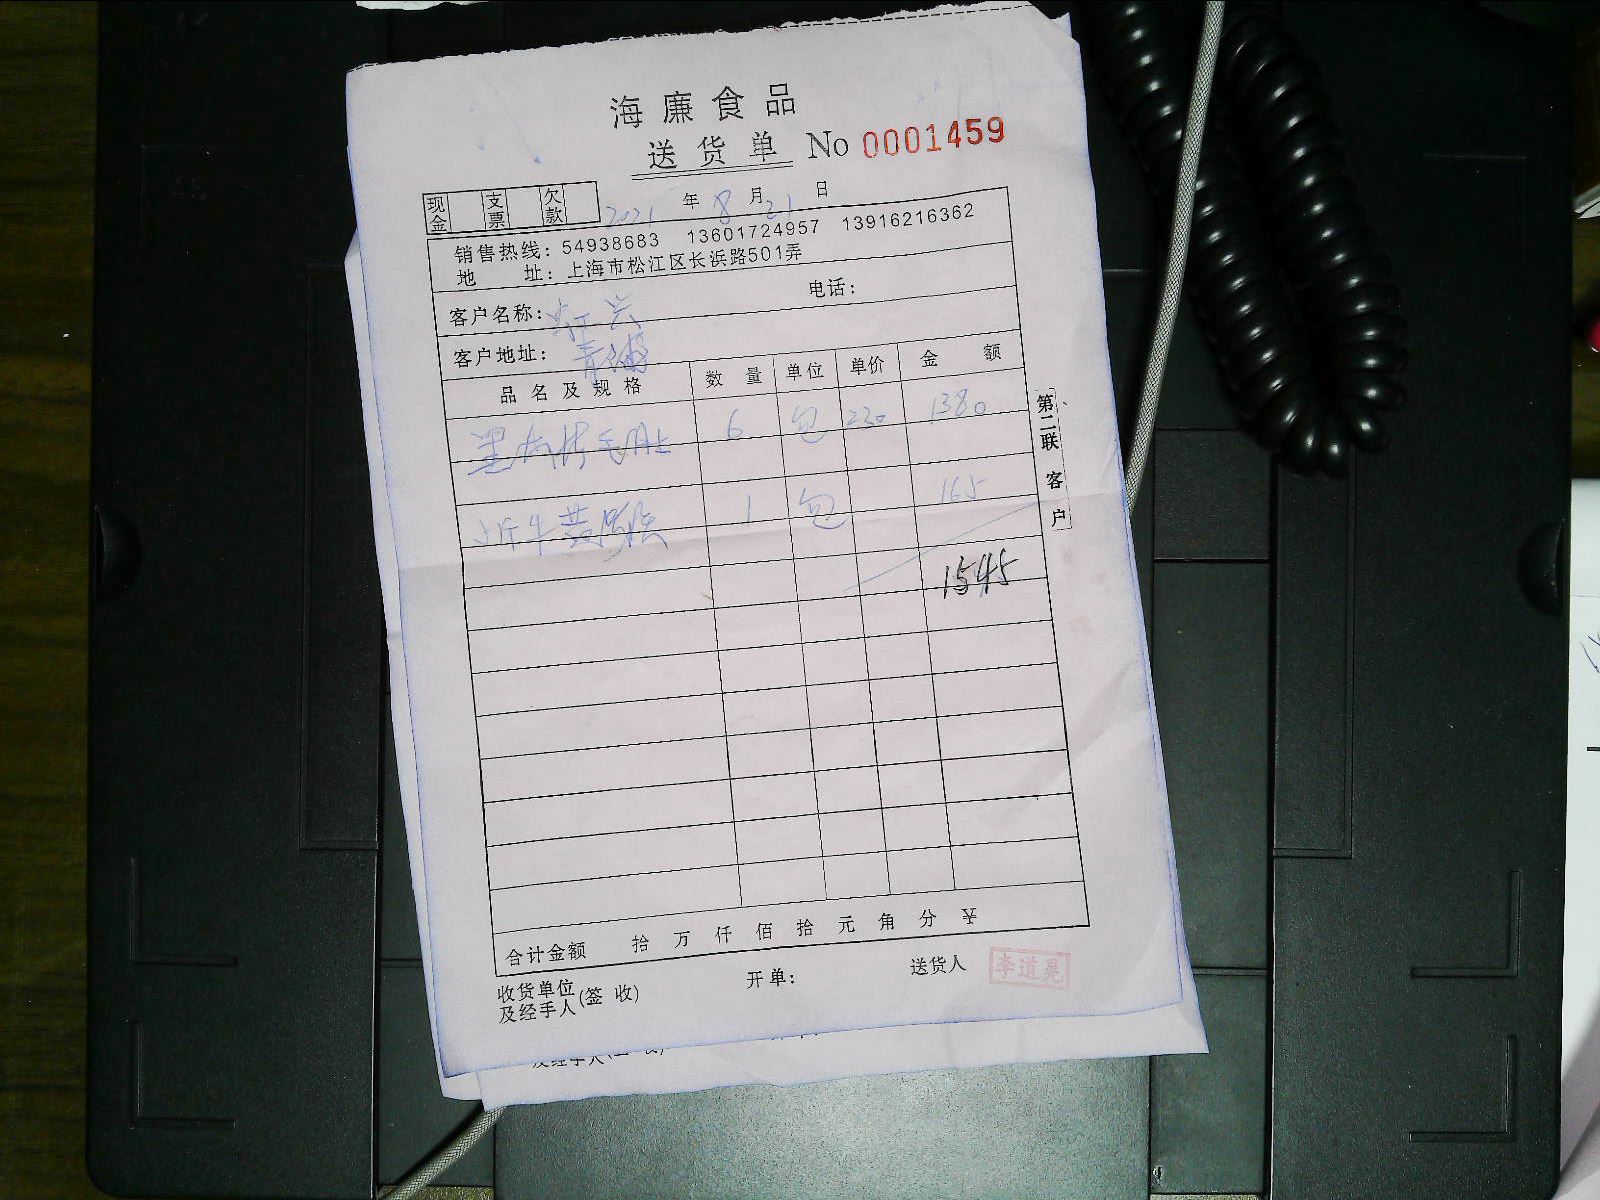 海廉食品
送货单 No 0001459
现金 支票 欠款 2021 年 8 月 21 日
销售热线：54938683 13601724957 13916216362
地 址：上海市松江区长浜路501弄
客户名称： 兴 电话：
客户地址： 青浦
品名及规格 数量 单位 单价 金额
毛肚 6 包 230 1380
斤牛黄喉 1 包 165
1545
合计金额 拾 万 仟 佰 拾 元 角 分 ￥
收货单位及经手人(签 收) 开单： 送货人 李道晃
第二联 客户